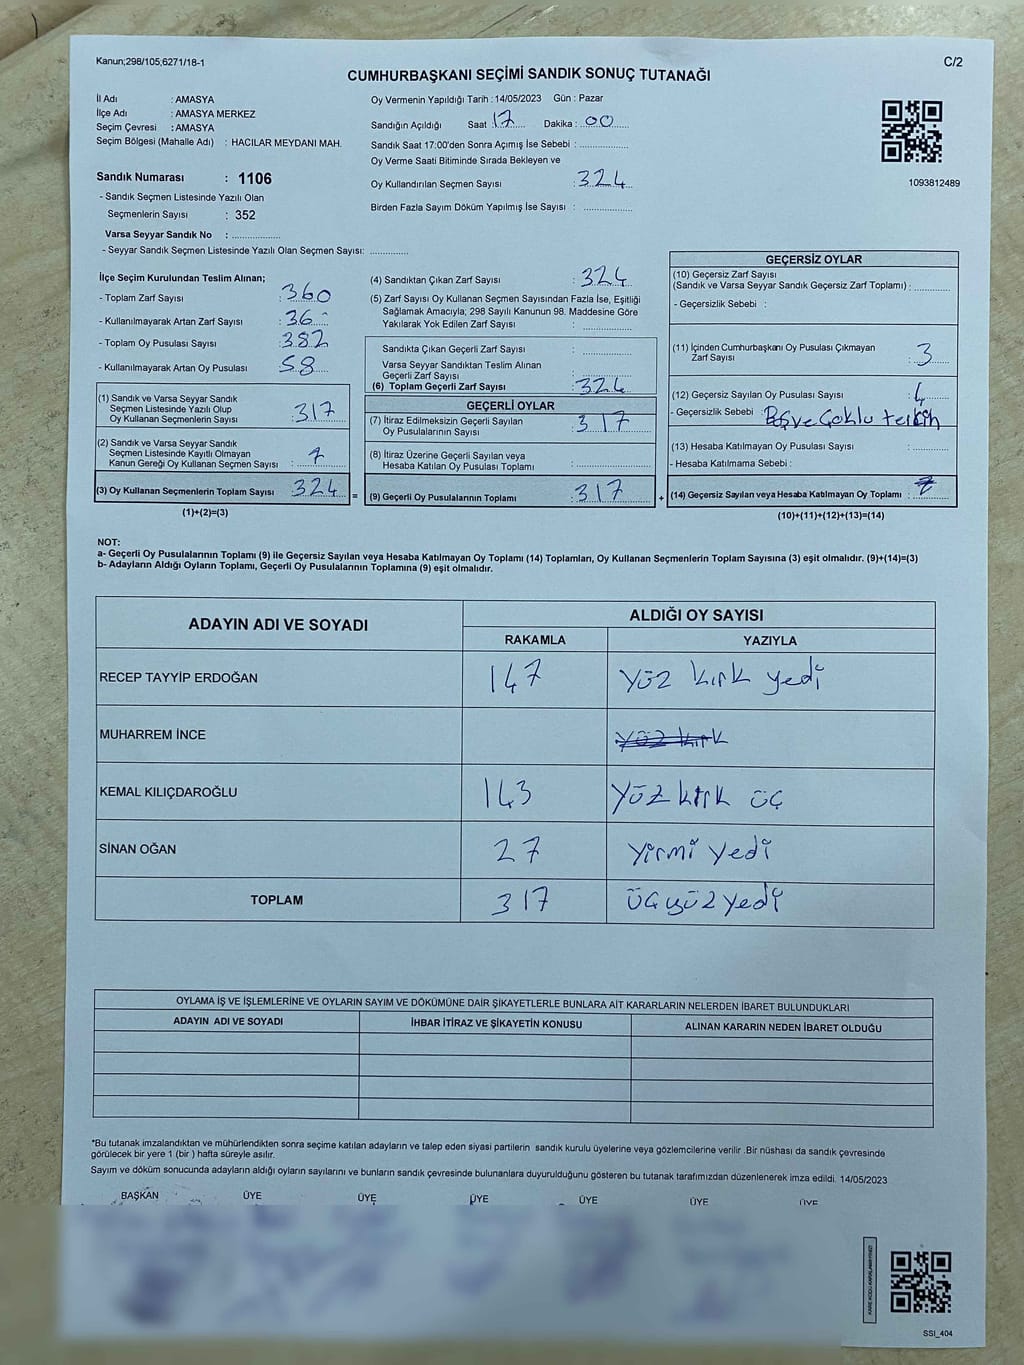 Kanun;298/105,6271/18-1
C/2
CUMHURBAŞKANI SEÇİMİ SANDIK SONUÇ TUTANAĞI
İl Adı : AMASYA
İlçe Adı : AMASYA MERKEZ
Seçim Çevresi : AMASYA
Seçim Bölgesi (Mahalle Adı) : HACILAR MEYDANI MAH.
Sandık Numarası : 1106
- Sandık Seçmen Listesinde Yazılı Olan
Seçmenlerin Sayısı : 352
Varsa Seyyar Sandık No : ................
- Seyyar Sandık Seçmen Listesinde Yazılı Olan Seçmen Sayısı: ............
Oy Vermenin Yapıldığı Tarih : 14/05/2023 Gün : Pazar
Sandığın Açıldığı Saat 17 Dakika : 00
Sandık Saat 17:00'den Sonra Açımış İse Sebebi : ................
Oy Verme Saati Bitiminde Sırada Bekleyen ve
Oy Kullandırılan Seçmen Sayısı : 324
Birden Fazla Sayım Döküm Yapılmış İse Sayısı : ................
1093812489
İlçe Seçim Kurulundan Teslim Alınan;
- Toplam Zarf Sayısı : 360
- Kullanılmayarak Artan Zarf Sayısı : 36
- Toplam Oy Pusulası Sayısı : 382
- Kullanılmayarak Artan Oy Pusulası : 58
(1) Sandık ve Varsa Seyyar Sandık
Seçmen Listesinde Yazılı Olup
Oy Kullanan Seçmenlerin Sayısı : 317
(2) Sandık ve Varsa Seyyar Sandık
Seçmen Listesinde Kayıtlı Olmayan
Kanun Gereği Oy Kullanan Seçmen Sayısı : 7
(3) Oy Kullanan Seçmenlerin Toplam Sayısı 324 =
(1)+(2)=(3)
(4) Sandıktan Çıkan Zarf Sayısı : 324
(5) Zarf Sayısı Oy Kullanan Seçmen Sayısından Fazla İse, Eşitliği
Sağlamak Amacıyla; 298 Sayılı Kanunun 98. Maddesine Göre
Yakılarak Yok Edilen Zarf Sayısı : ................
Sandıkta Çıkan Geçerli Zarf Sayısı : ................
Varsa Seyyar Sandıktan Teslim Alınan
Geçerli Zarf Sayısı : ................
(6) Toplam Geçerli Zarf Sayısı : 324
GEÇERLİ OYLAR
(7) İtiraz Edilmeksizin Geçerli Sayılan
Oy Pusulalarının Sayısı : 317
(8) İtiraz Üzerine Geçerli Sayılan veya
Hesaba Katılan Oy Pusulası Toplamı : ................
(9) Geçerli Oy Pusulalarının Toplamı : 317 +
GEÇERSİZ OYLAR
(10) Geçersiz Zarf Sayısı
(Sandık ve Varsa Seyyar Sandık Geçersiz Zarf Toplamı) : ............
- Geçersizlik Sebebi :
(11) İçinden Cumhurbaşkanı Oy Pusulası Çıkmayan
Zarf Sayısı : 3
(12) Geçersiz Sayılan Oy Pusulası Sayısı : 4
- Geçersizlik Sebebi : Boş ve Çoklu tercih
(13) Hesaba Katılmayan Oy Pusulası Sayısı : ............
- Hesaba Katılmama Sebebi :
(14) Geçersiz Sayılan veya Hesaba Katılmayan Oy Toplamı : 7
(10)+(11)+(12)+(13)=(14)
NOT:
a- Geçerli Oy Pusulalarının Toplamı (9) ile Geçersiz Sayılan veya Hesaba Katılmayan Oy Toplamı (14) Toplamları, Oy Kullanan Seçmenlerin Toplam Sayısına (3) eşit olmalıdır. (9)+(14)=(3)
b- Adayların Aldığı Oyların Toplamı, Geçerli Oy Pusulalarının Toplamına (9) eşit olmalıdır.
ADAYIN ADI VE SOYADI ALDIĞI OY SAYISI
RAKAMLA YAZIYLA
RECEP TAYYİP ERDOĞAN 147 Yüz kırk yedi
MUHARREM İNCE yüz kırk
KEMAL KILIÇDAROĞLU 143 yüz kırk üç
SİNAN OĞAN 27 yirmi yedi
TOPLAM 317 üç yüz yedi
OYLAMA İŞ VE İŞLEMLERİNE VE OYLARIN SAYIM VE DÖKÜMÜNE DAİR ŞİKAYETLERLE BUNLARA AİT KARARLARIN NELERDEN İBARET BULUNDUKLARI
ADAYIN ADI VE SOYADI İHBAR İTİRAZ VE ŞİKAYETİN KONUSU ALINAN KARARIN NEDEN İBARET OLDUĞU
*Bu tutanak imzalandıktan ve mühürlendikten sonra seçime katılan adayların ve talep eden siyasi partilerin sandık kurulu üyelerine veya gözlemcilerine verilir .Bir nüshası da sandık çevresinde
görülecek bir yere 1 (bir ) hafta süreyle asılır.
Sayım ve döküm sonucunda adayların aldığı oyların sayılarını ve bunların sandık çevresinde bulunanlara duyurulduğunu gösteren bu tutanak tarafımızdan düzenlenerek imza edildi. 14/05/2023
BAŞKAN ÜYE ÜYE ÜYE ÜYE ÜYE ÜYE
SSI_404